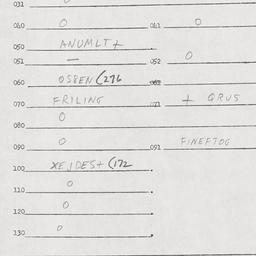 031
040 0 041 0
050 ANUMLT+
051 — 052 0
060 OSBEN (276 062
070 FRILING 071 + GRUS
080 0
090 0 091 FINEFTOG
100 XEJDEST (172
110 0
120 0
130 0